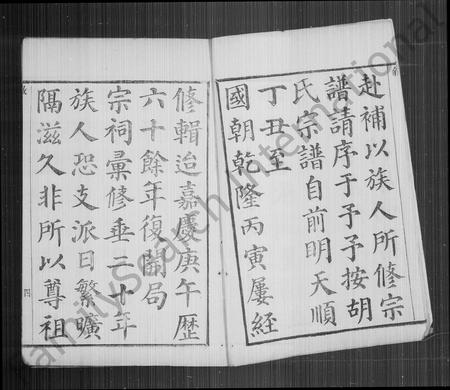 赴補以族人所修宗
譜請序于予予按胡
氏宗譜自前明天順
丁丑至
國朝乾隆丙寅屢經
修輯迨嘉慶庚午歷
六十餘年復開局
宗祠彙修垂二十年
族人恐支派日繁曠
隔滋久非所以尊祖
四
FamilySearch International